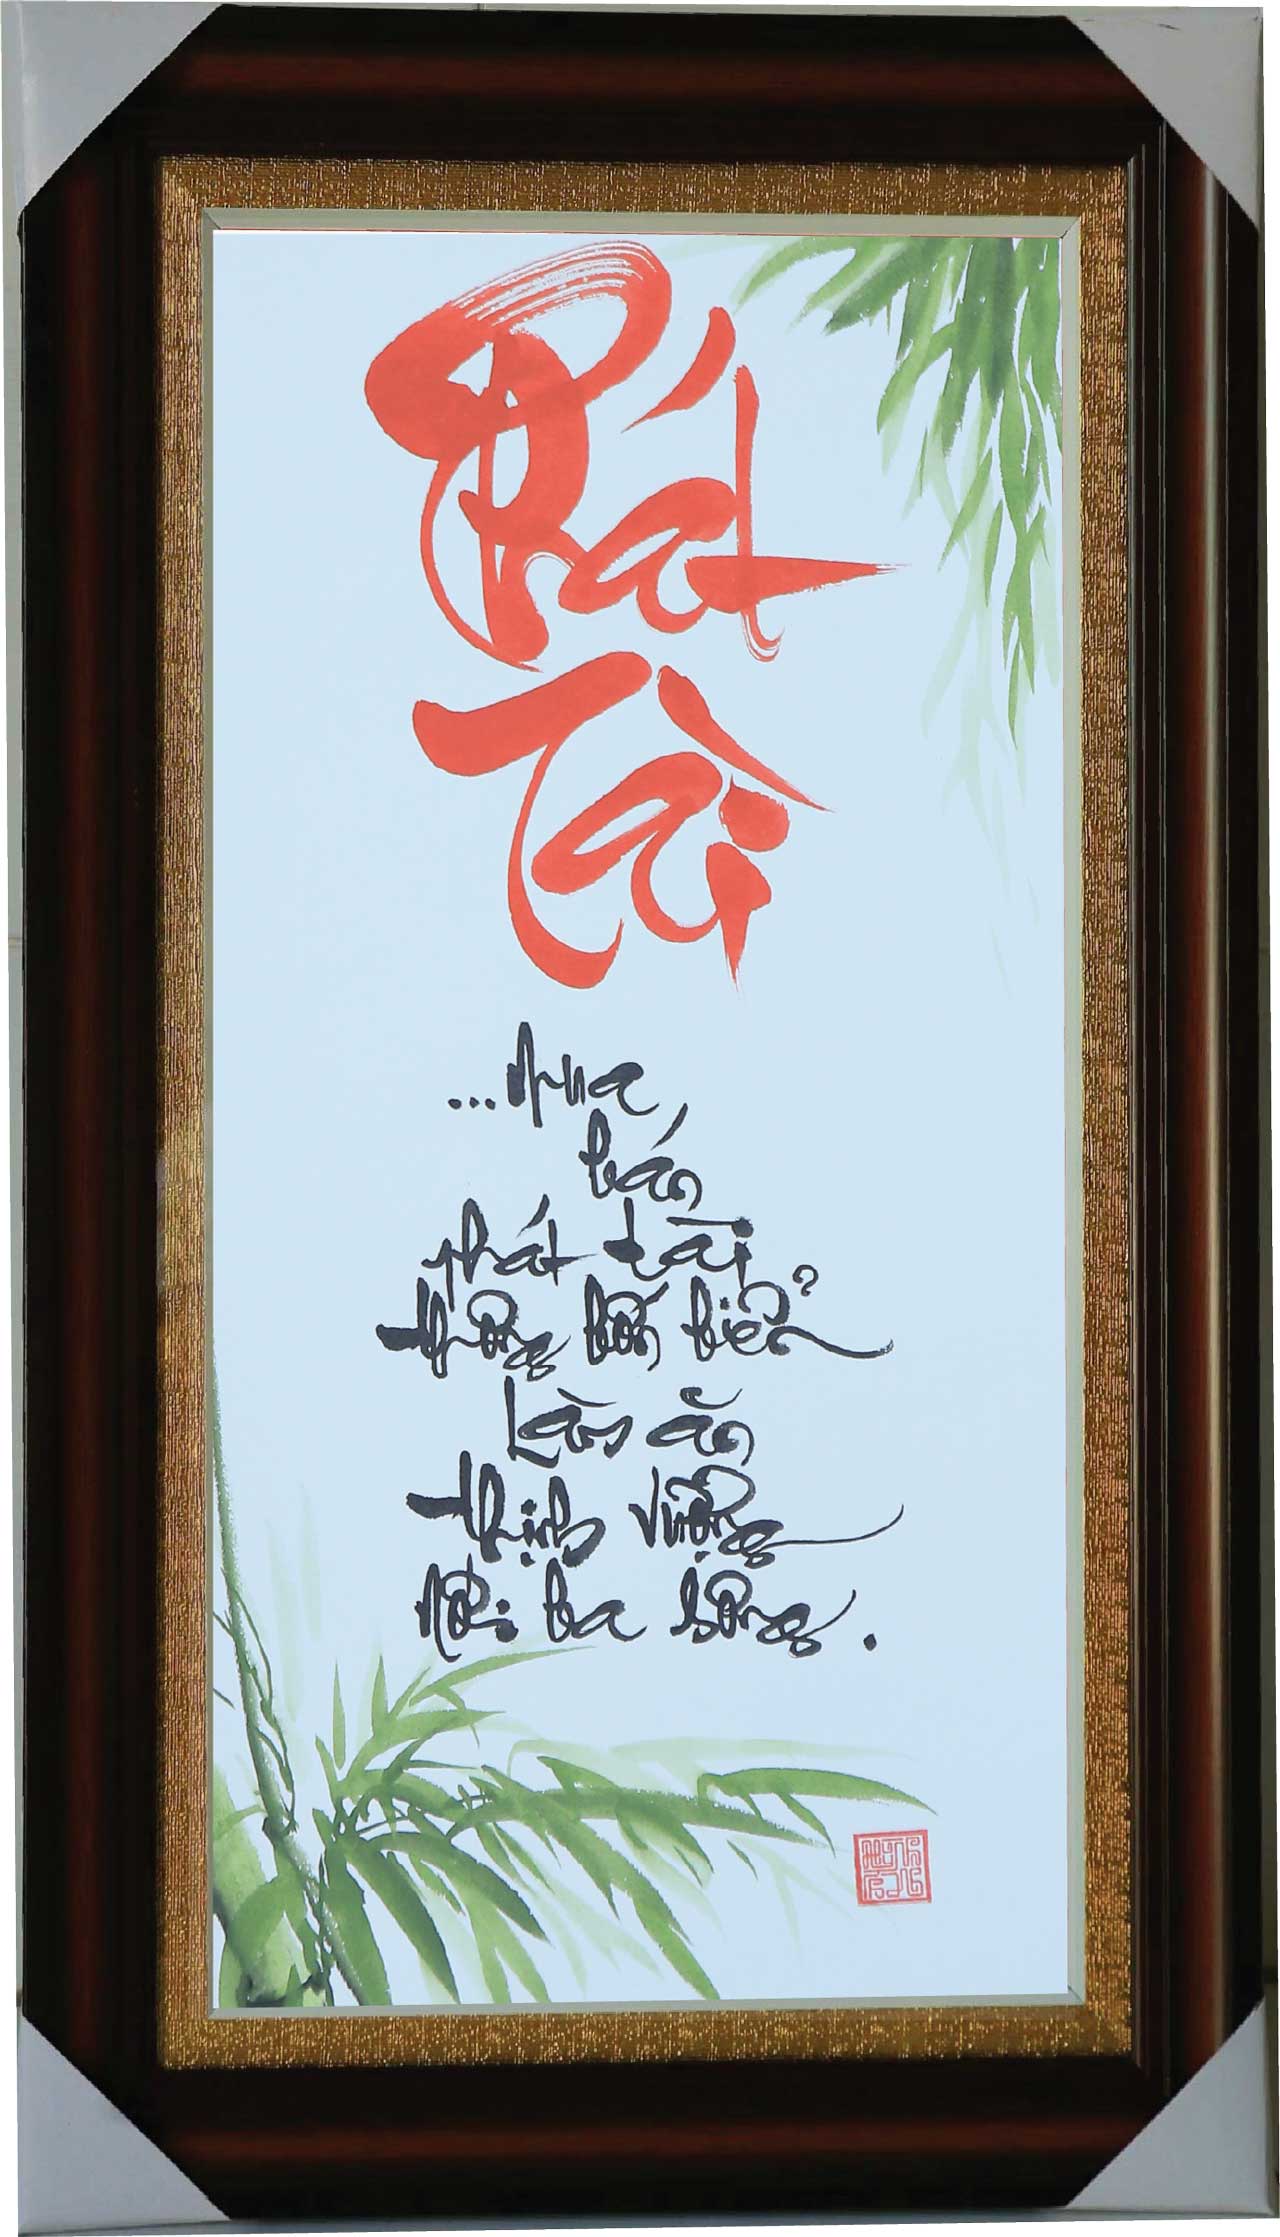 Phát
Tài
...Mua
bán
phát tài
thông bốn biển
Làm ăn
thịnh vượng
Nối ba sông.